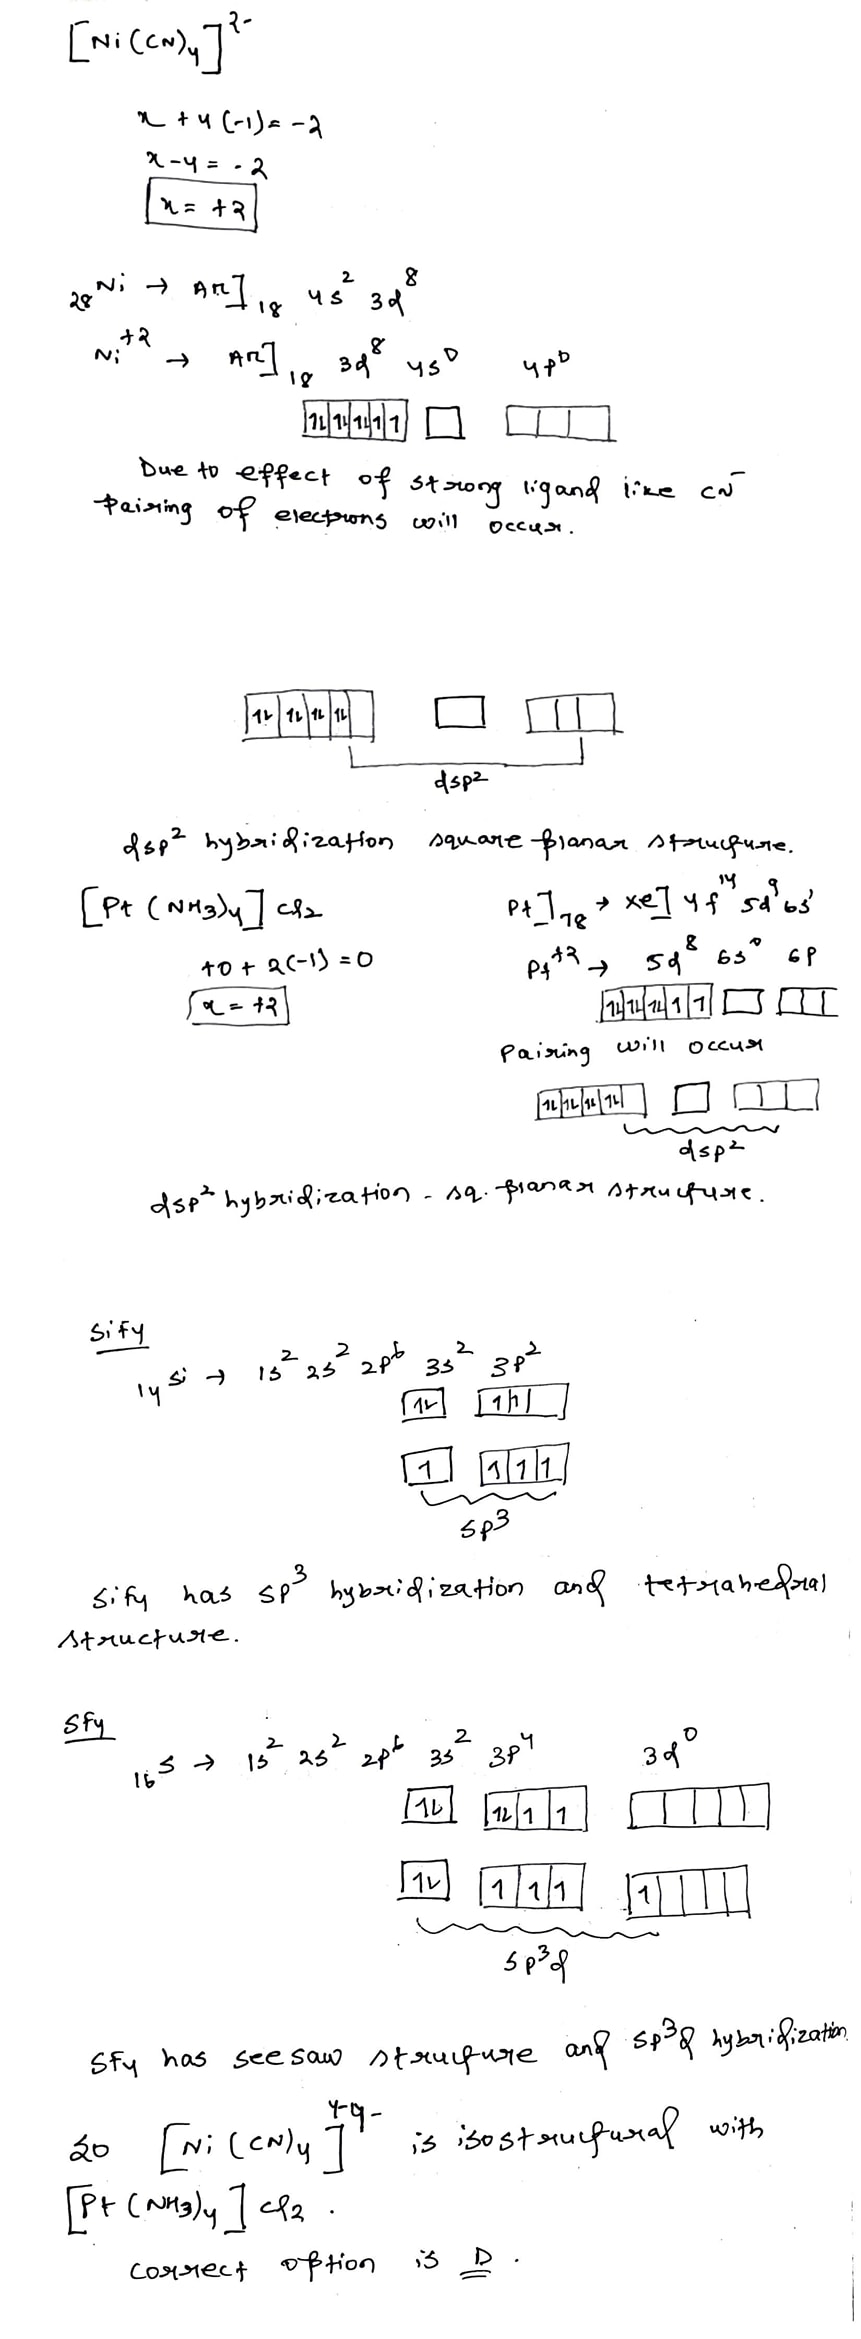 [Ni(CN)4]2-
x + 4(-1) = -2
x - 4 = -2
x = +2
28Ni → Ar]18 4s2 3d8
Ni+2 → Ar]18 3d8 4s0 4p0
1L 1L 1L 1 1
Due to effect of strong ligand like CN-
Pairing of electrons will occur.
1L 1L 1L 1L
dsp2
dsp2 hybridization square planar structure.
[Pt(NH3)4]Cl2
+0 + 2(-1) = 0
x = +2
Pt]78 → Xe] 4f14 5d9 6s1
Pt+2 → 5d8 6s0 6p
1L 1L 1L 1 1
Pairing will occur
1L 1L 1L 1L
dsp2
dsp2 hybridization - sq. planar structure.
SiF4
14Si → 1s2 2s2 2p6 3s2 3p2
1L 1 1
1 1 1 1
sp3
SiF4 has sp3 hybridization and tetrahedral
structure.
SF4
16S → 1s2 2s2 2p6 3s2 3p4 3d0
1L 1L 1 1
1L 1 1 1 1
sp3d
SF4 has seesaw structure and sp3d hybridization
So [Ni(CN)4] is isostructural with
[Pt(NH3)4]Cl2.
correct option is D.